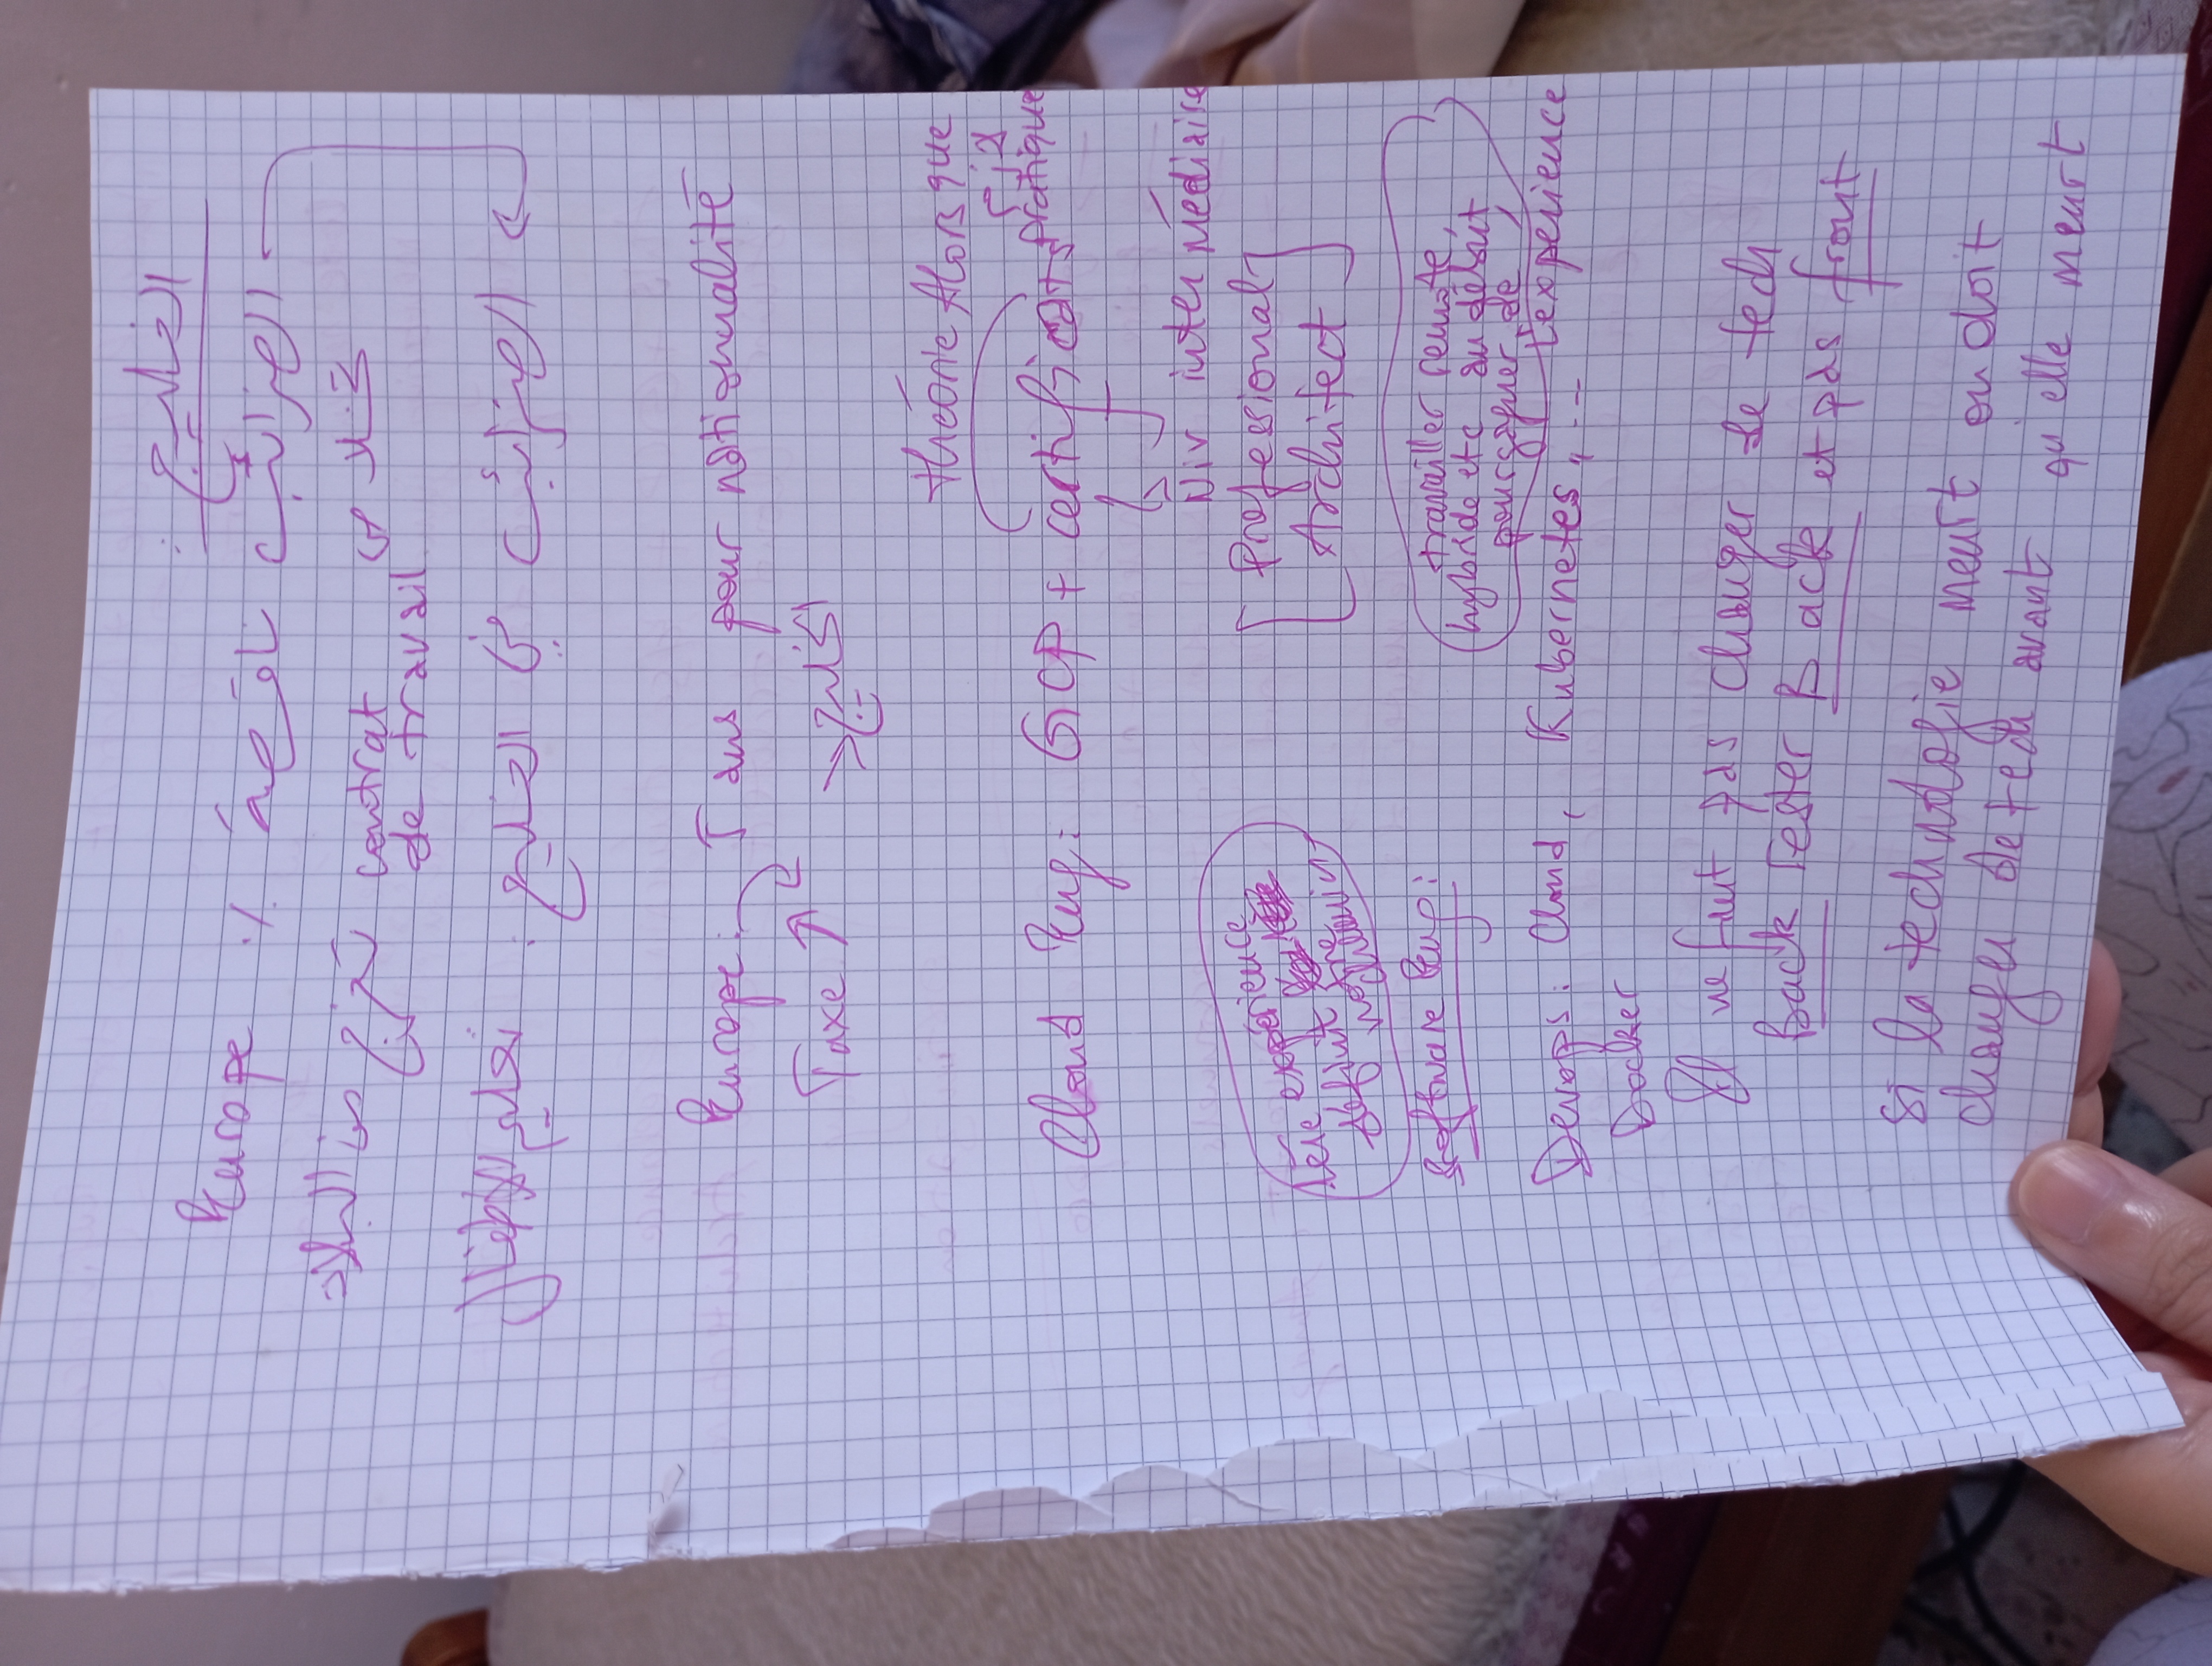 الخليج :
الضرائب ناقصة ٪ Europe
contrat تخرج من البلاد
de travail
الضرائب في الخليج : تعليم الأطفال
Europe : 5 ans pour nationalité
Taxe ↑ الخليج
théorie Alors que
pratique
Cloud Eng : GCP + certificats
Niv intermédiaire
[Professional
Architect]
1ère expérience
définit
notre
chemin
software Eng :
travailler remote,
hybride etc au début
pour gagner de
l'expérience
Devops : Cloud, Kubernetes, ...
Docker
Il ne faut pas changer de tech
Back rester Back et pas front
si la technologie meurt on doit
changer de tech avant qu'elle meurt